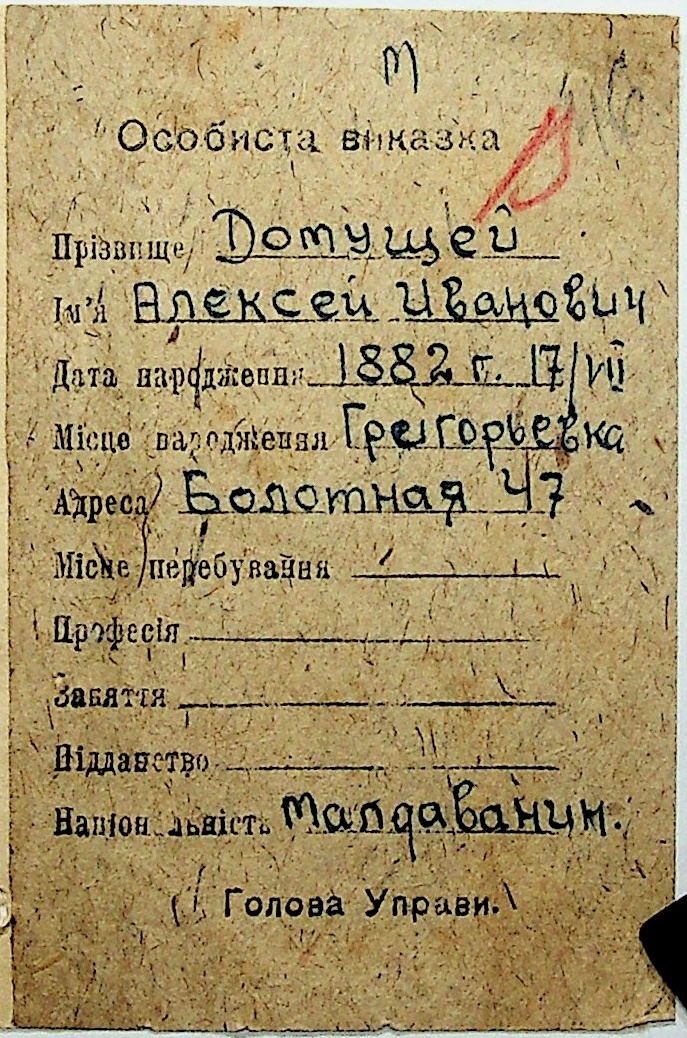 М
Особиста виказка
Прізвище Дотущей
Ім'я Алексей Иванович
Дата народження 1882 г. 17/VII
Місце народження Григорьевка
Адреса Болотная 47
Місце перебування
Професія
Заняття
Підданство
Національність малдаванин.
Голова Управи.